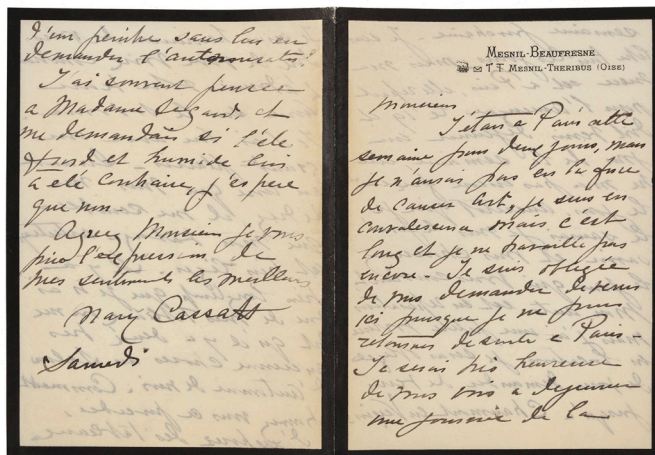 d'un peintre sans lui en
demander l'autorisation?
J'ai souvent pensée
a Madame Segard et
me demandais si l'été
froid et humide lui
a été contraire, j'espere
que non.
Agréez Monsieur je vous
prie l'expression de
mes sentiments les meilleurs
Mary Cassatt
Samedi
MESNIL-BEAUFRESNE
MESNIL-THERIBUS (OISE)
Monsieur
J'étais a Paris cette
semaine pour deux jours, mais
je n'aurais pas eu la force
de causer Art, je suis en
convalescence mais c'est
long et je ne travaille pas
encore. Je suis obligée
de vous demander de venir
ici puisque je ne puis
retourner de suite a Paris -
Je serais très heureuse
de vous voir a dejeuner
une journée de la